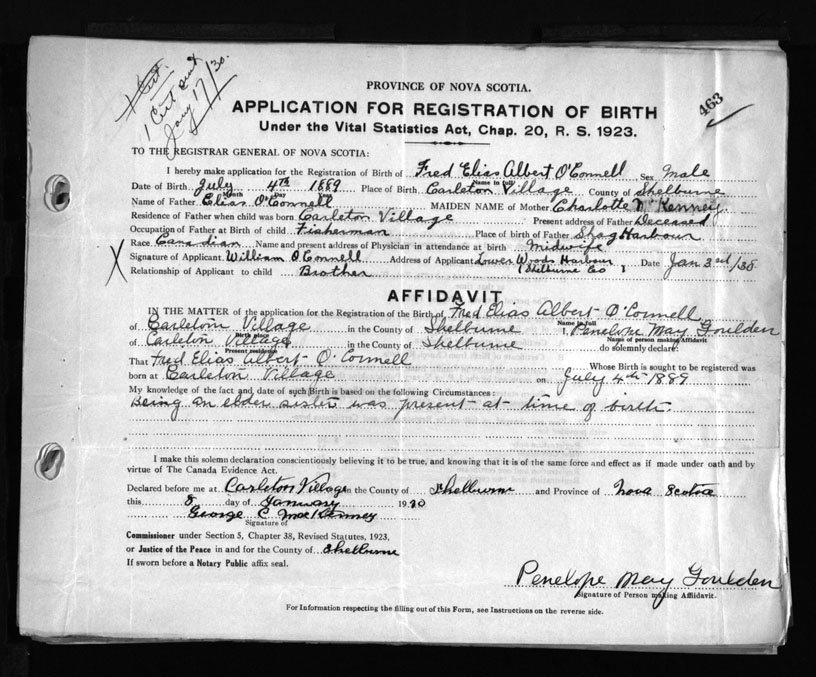 1 Cert sent
Jany 17/30.
463
PROVINCE OF NOVA SCOTIA.
APPLICATION FOR REGISTRATION OF BIRTH
Under the Vital Statistics Act, Chap. 20, R. S. 1923.
TO THE REGISTRAR GENERAL OF NOVA SCOTIA:
I hereby make application for the Registration of Birth of Fred Elias Albert O'Connell Sex Male
Name in full
Date of Birth July 4th 1889 Place of Birth Carleton Village County of Shelburne
Month Day Year
Name of Father Elias O'Connell MAIDEN NAME of Mother Charlotte McKenney
Residence of Father when child was born Carleton Village Present address of Father Deceased
Occupation of Father at Birth of child Fisherman Place of birth of Father Shag Harbour
Race Canadian Name and present address of Physician in attendance at birth Midwife
Signature of Applicant William O'Connell Address of Applicant Lower Woods Harbour Date Jan 3rd/30
Relationship of Applicant to child Brother (Shelburne Co)
AFFIDAVIT
IN THE MATTER of the application for the Registration of the Birth of Fred Elias Albert O'Connell
Name in full
of Carleton Village in the County of Shelburne I, Penelope May Goulden
Birth place Name of person making Affidavit
of Carleton Village in the County of Shelburne do solemnly declare:
Present residence
That Fred Elias Albert O'Connell Whose Birth is sought to be registered was
born at Carleton Village on July 4th 1889
My knowledge of the fact and date of such Birth is based on the following Circumstances:
Being an elder sister was present at time of birth.
I make this solemn declaration conscientiously believing it to be true, and knowing that it is of the same force and effect as if made under oath and by
virtue of The Canada Evidence Act.
Declared before me at Carleton Village in the County of Shelburne and Province of Nova Scotia
this 8 day of January 1930
George C MacKenney
Signature of
Commissioner under Section 5, Chapter 38, Revised Statutes, 1923,
or Justice of the Peace in and for the County of Shelburne
If sworn before a Notary Public affix seal.
Penelope May Goulden
Signature of Person making Affidavit.
For Information respecting the filling out of this Form, see Instructions on the reverse side.